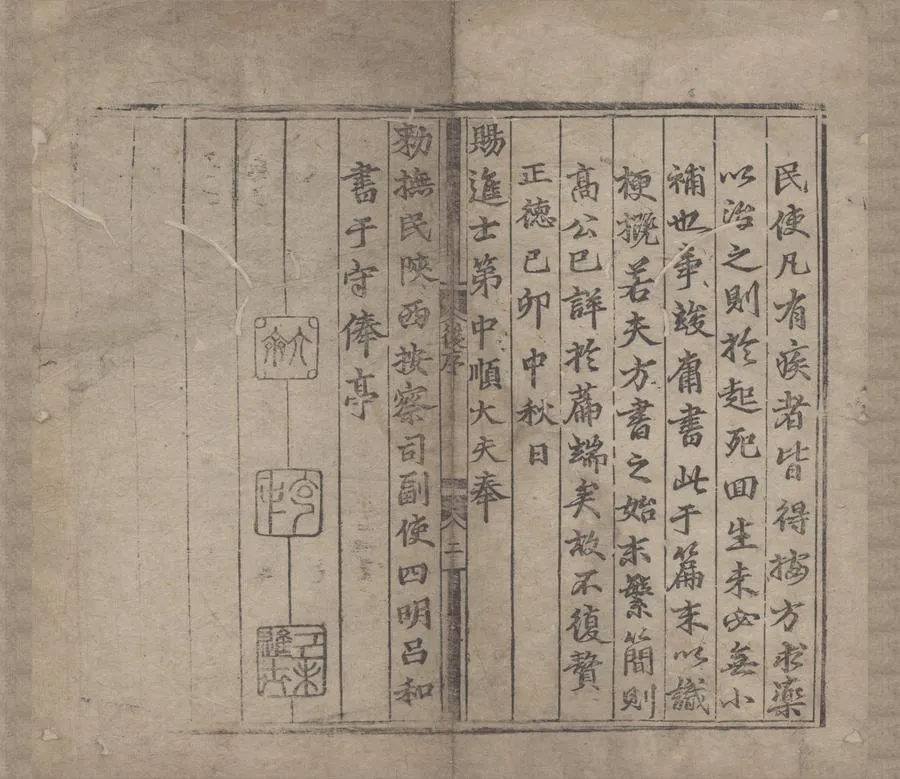 民使凡有疾者皆得按方求藥
以治之則於起死回生未必無小
補也事竣庸書此于篇末以識
梗槪若夫方書之始末繁簡則
髙公已詳於篇端矣故不復贅
正徳己卯中秋日
賜進士第中順大夫奉
後序
二
勑撫民陝西按察司副使四明呂和
書于守俸亭